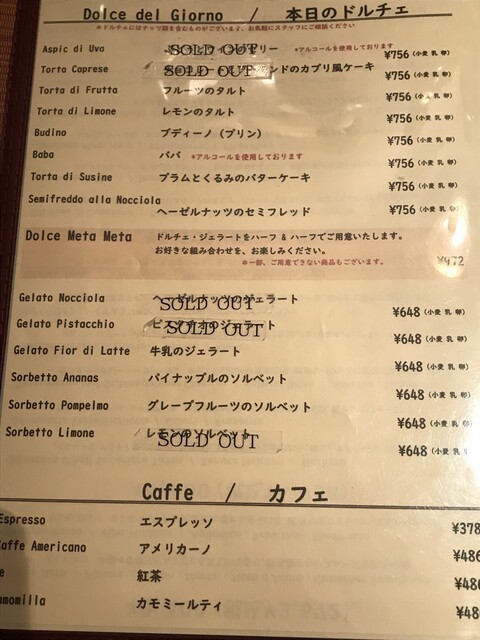 Dolce del Giorno / 本日のドルチェ
※ドルチェにはナッツ類を含むものがございます、お気軽にスタッフにご相談ください
Aspic di Uva SOLD OUT リー ※アルコールを使用しております ¥756 (小麦 乳 卵)
Torta Caprese SOLD OUT ンドのカプリ風ケーキ ¥756 (小麦 乳 卵)
Torta di Frutta フルーツのタルト ¥756 (小麦 乳 卵)
Torta di Limone レモンのタルト ¥756 (小麦 乳 卵)
Budino ブディーノ（プリン） ¥756 (小麦 乳 卵)
Baba ババ ※アルコールを使用しております ¥756 (小麦 乳 卵)
Torta di Susine プラムとくるみのバターケーキ ¥756 (小麦 乳 卵)
Semifreddo alla Nocciola
ヘーゼルナッツのセミフレッド ¥756 (小麦 乳 卵)
Dolce Meta Meta ドルチェ・ジェラートをハーフ & ハーフでご用意いたします。
お好きな組み合わせを、お楽しみください。
※一部、ご用意できない商品もございます。 ¥972
Gelato Nocciola ヘーゼルナッツのジェラート SOLD OUT ¥648 (小麦 乳 卵)
Gelato Pistacchio ピスタチオのジェラート SOLD OUT ¥648 (小麦 乳 卵)
Gelato Fior di Latte 牛乳のジェラート ¥648 (小麦 乳 卵)
Sorbetto Ananas パイナップルのソルベット ¥648 (小麦 乳 卵)
Sorbetto Pompelmo グレープフルーツのソルベット ¥648 (小麦 乳 卵)
Sorbetto Limone レモンのソルベット SOLD OUT ¥648 (小麦 乳
Caffe / カフェ
Espresso エスプレッソ ¥378
Caffe Americano アメリカーノ ¥486
e 紅茶 ¥486
amomilla カモミールティ ¥48